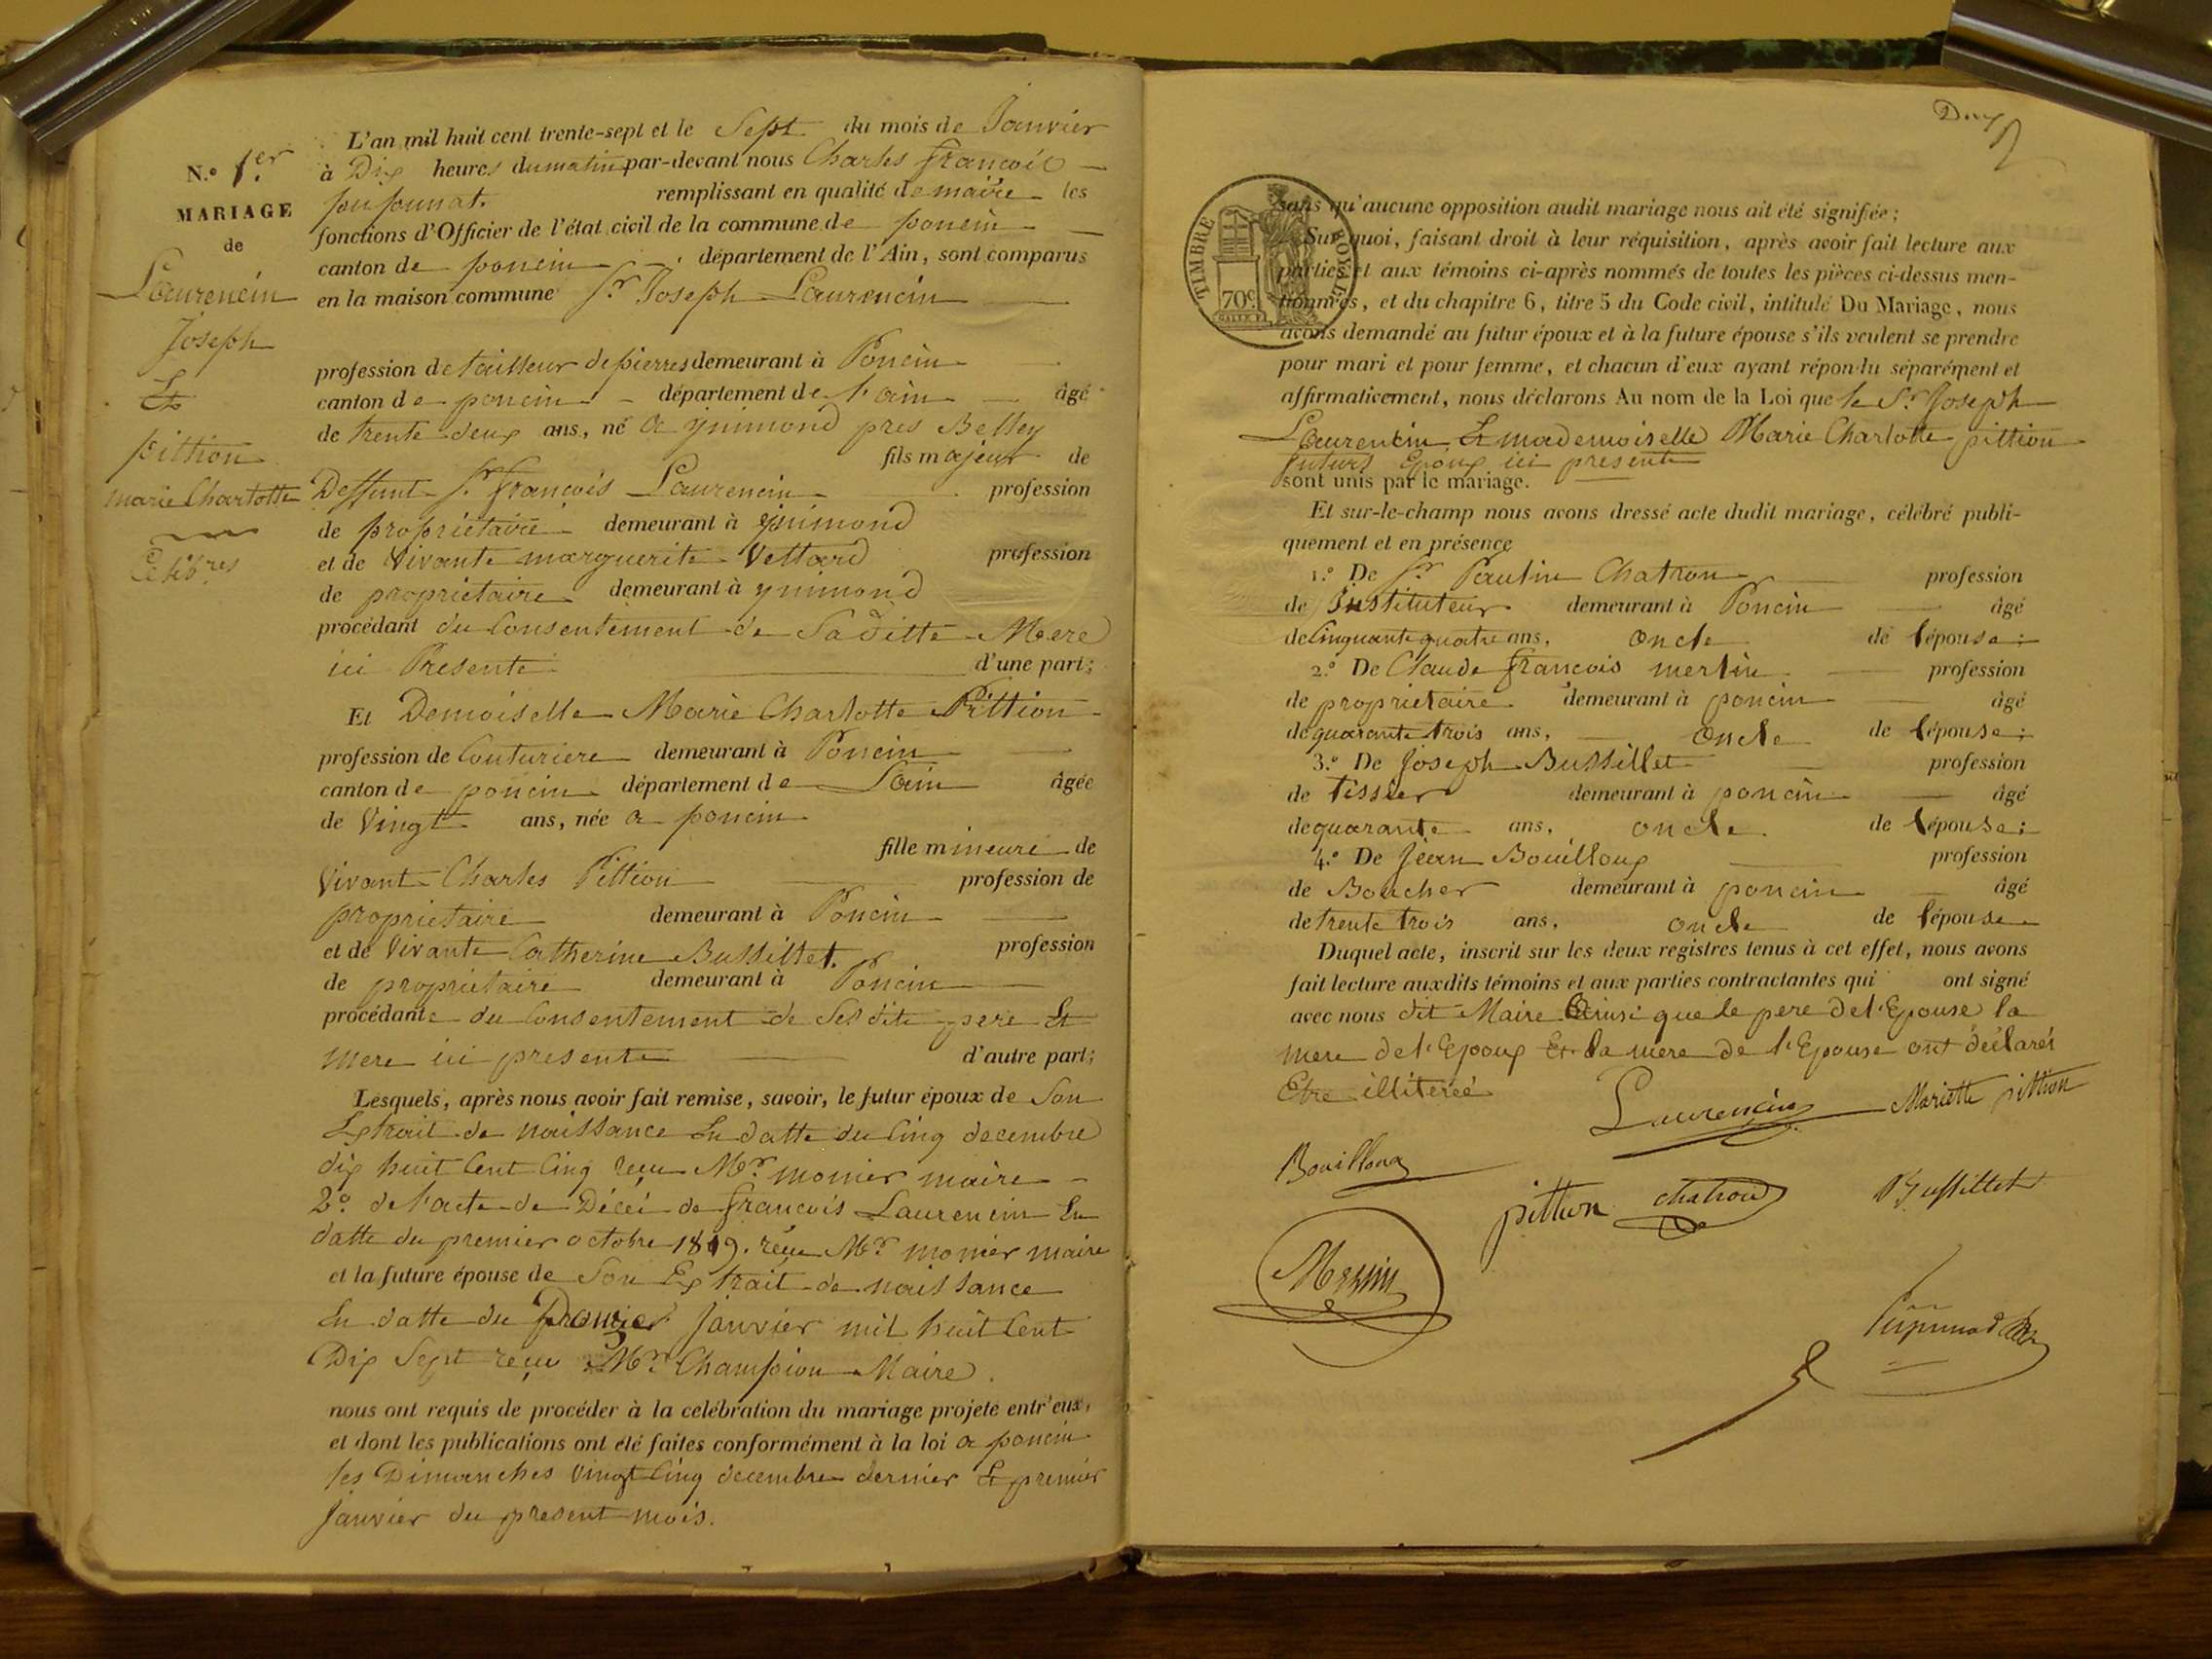 N.º 1.er
MARIAGE
de
Laurencin
Joseph
Et
pittion
marie Charlotte
L'an mil huit cent trente-sept et le Sept du mois de Janvier
à Dix heures du matin par-devant nous Charles françois
pupunat. remplissant en qualité de maire les
fonctions d'Officier de l'état civil de la commune de poncin
canton de poncin département de l'Ain, sont comparus
en la maison commune Sr Joseph Laurencin
profession de tailleur de pierres demeurant à Poncin
canton de poncin département de l'ain âgé
de trente deux ans, né a ynimond pres Belley
fils majeur de
Deffunt Sr. françois Laurencin profession
de propriétaire demeurant à ynimond
et de Vivante marguerite Vettard profession
de propriétaire demeurant à ynimond
procédant du Consentement de Sa ditte Mere
ici Presente d'une part;
Et Demoiselle Marie Charlotte Pittion
profession de Couturiere demeurant à Poncin
canton de poncin département de Lain âgée
de Vingt ans, née a poncin
fille mineure de
Vivant Charles Pittion profession de
propriétaire demeurant à Poncin
et de Vivante Catherine Bussillet. profession
de propriétaire demeurant à Poncin
procédante du Consentement de Ses dite pere Et
mere ici presente d'autre part;
Lesquels, après nous avoir fait remise, savoir, le futur époux de Son
Extrait de naissance En datte du Cinq decembre
dix huit Cent Cinq reçu Mr. monier maire
2º. de l'acte de Décei de françois Laurencin En
datte du premier octobre 1819. réçu Mr. monier maire
et la future épouse de Son Extrait de naissance
En datte du Premier Janvier mil huit Cent
Dix Sept reçu Mr. Champion Maire.
nous ont requis de procéder à la celébration du mariage projeté entr'eux,
et dont les publications ont été faites conformément à la loi a poncin
les Dimanches Vingt Cinq decembre dernier Et premier
Janvier du present mois.
Deux
TIMBRE ROYALE
70c
sans qu'aucune opposition audit mariage nous ait été signifiée;
Sur quoi, faisant droit à leur réquisition, après avoir fait lecture aux
parties et aux témoins ci-après nommés de toutes les pièces ci-dessus men-
tionnées, et du chapitre 6, titre 5 du Code civil, intitulé Du Mariage, nous
avons demandé au futur époux et à la future épouse s'ils veulent se prendre
pour mari et pour femme, et chacun d'eux ayant répondu séparément et
affirmativement, nous déclarons Au nom de la Loi que le Sr. Joseph
Laurencin Et mademoiselle Marie Charlotte pittion
futurs Epoux ici presente
sont unis par le mariage.
Et sur-le-champ nous avons dressé acte dudit mariage, célébré publi-
quement et en présence
1.º De Sr Paulin Chatron profession
de Instituteur demeurant à Poncin âgé
de Cinquante quatre ans, oncle de lépouse;
2.º De Claude françois merlin profession
de propriétaire demeurant à poncin âgé
de quarante trois ans, oncle de lépouse;
3.º De Joseph Bussillet profession
de tissier demeurant à poncin âgé
de quarante ans, oncle de lépouse;
4.º De Jean Bouilloux profession
de Boucher demeurant à poncin âgé
de trente trois ans, oncle de lépouse
Duquel acte, inscrit sur les deux registres tenus à cet effet, nous avons
fait lecture auxdits témoins et aux parties contractantes qui ont signé
avec nous dit Maire Ainsi que le pere de l'Epouse la
mere de l'Epoux Et la mère de l'Epouse ont déclarés
Etre illiteréé
Laurencin Mariette pittion
Bouilloux
pittion chatron Bussillet
Merlin
Pupunat